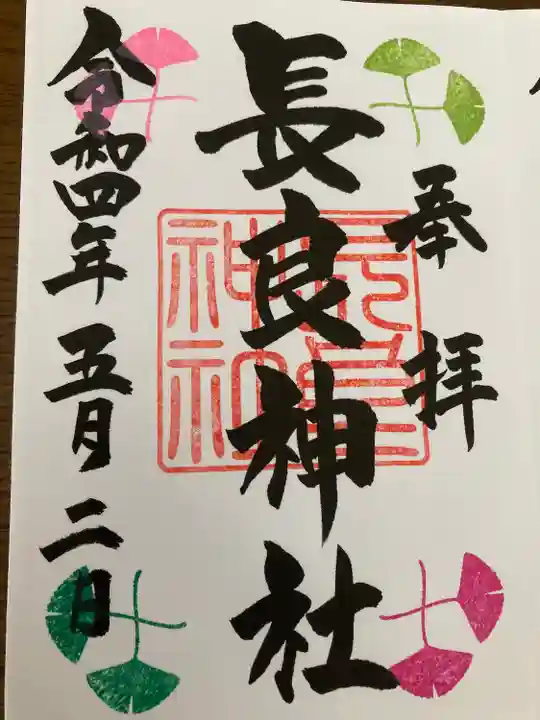 奉拝
長良神社
長良神社
令和四年五月二日